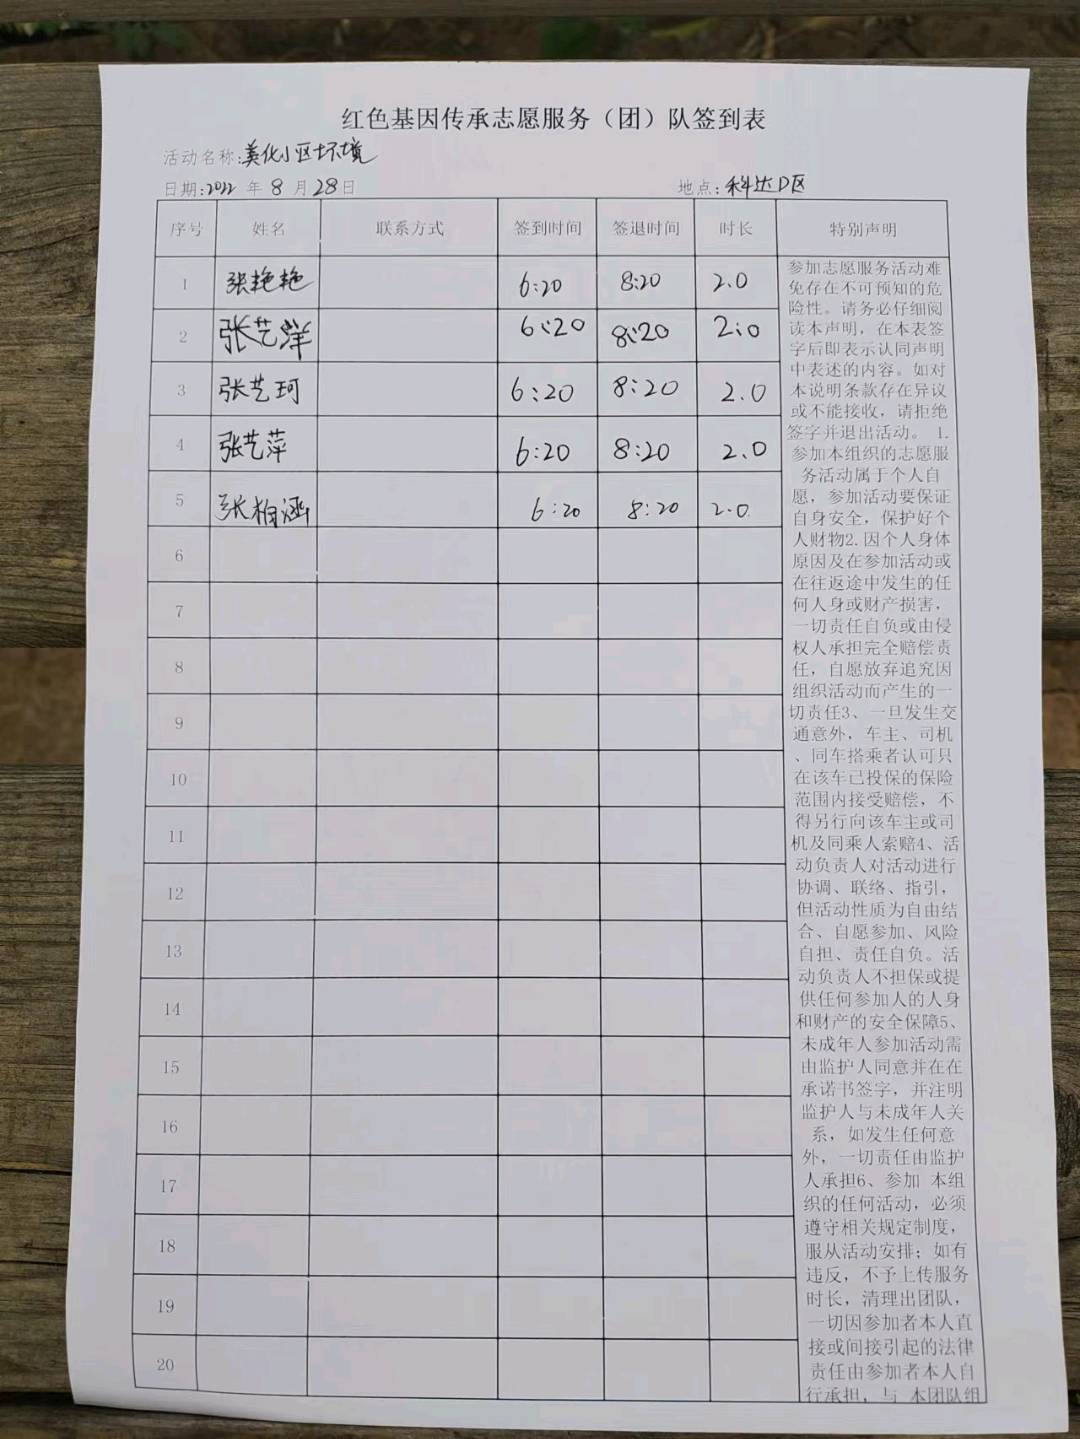 红色基因传承志愿服务（团）队签到表
活动名称:美化小区环境
日期:2022 年 8 月 28日 地点:科达D区
序号 姓名 联系方式 签到时间 签退时间 时长 特别声明
1 张艳艳 6:20 8:20 2.0
2 张艺洋 6:20 8:20 2.0
3 张艺珂 6:20 8:20 2.0
4 张艺萍 6:20 8:20 2.0
5 张柏涵 6:20 8:20 2.0
6
7
8
9
10
11
12
13
14
15
16
17
18
19
20
参加志愿服务活动难
免存在不可预知的危
险性。请务必仔细阅
读本声明，在本表签
字后即表示认同声明
中表述的内容。如对
本说明条款存在异议
或不能接收，请拒绝
签字并退出活动。 1.
参加本组织的志愿服
务活动属于个人自
愿，参加活动要保证
自身安全，保护好个
人财物2.因个人身体
原因及在参加活动或
在往返途中发生的任
何人身或财产损害，
一切责任自负或由侵
权人承担完全赔偿责
任，自愿放弃追究因
组织活动而产生的一
切责任3、一旦发生交
通意外，车主、司机
、同车搭乘者认可只
在该车已投保的保险
范围内接受赔偿，不
得另行向该车主或司
机及同乘人索赔4、活
动负责人对活动进行
协调、联络、指引，
但活动性质为自由结
合、自愿参加、风险
自担、责任自负。活
动负责人不担保或提
供任何参加人的人身
和财产的安全保障5、
未成年人参加活动需
由监护人同意并在在
承诺书签字，并注明
监护人与未成年人关
系，如发生任何意
外，一切责任由监护
人承担6、参加 本组
织的任何活动，必须
遵守相关规定制度，
服从活动安排；如有
违反，不予上传服务
时长，清理出团队，
一切因参加者本人直
接或间接引起的法律
责任由参加者本人自
行承担，与 本团队组